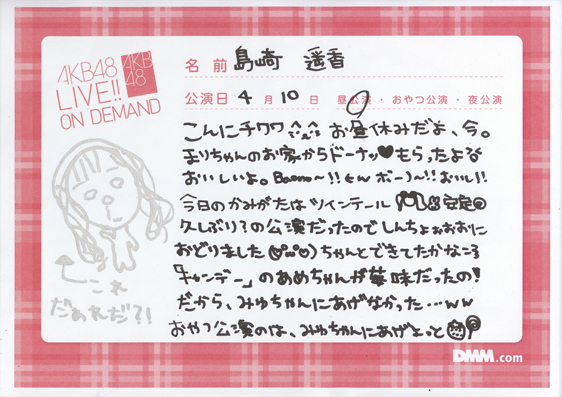 AKB48
LIVE!!
ON DEMAND
AKB
48
名前 島崎 遥香
公演日 4月10日 昼公演・おやつ公演・夜公演
こんにチワワ お昼休みだよ、今。
まりちゃんのお家からドーナッツ♥もらったよ
おいしいよ。 ボーノ〜!! おいしい!!
今日のかみがたはツインテール 安定
久しぶり?の公演だったのでしんちょぉぉおおに
おどりました ちゃんとできてたかな
「キャンデー」のあめちゃんが苺味だったの!
だから、みゆちゃんにあげなかった…ww
おやつ公演のは、みゆちゃんにあげよっと
これ
だぁれだ?!
DMM.com